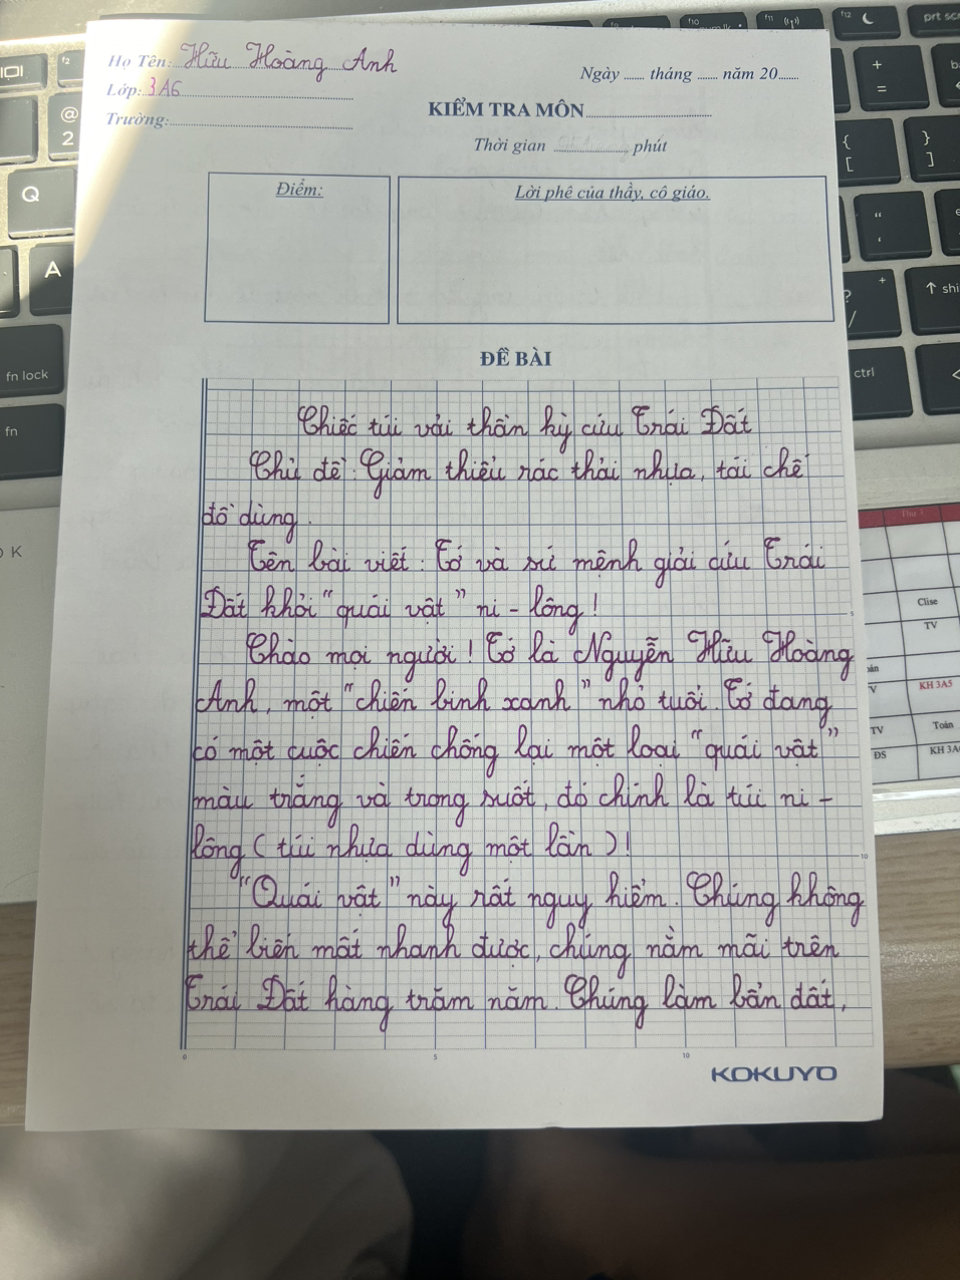 Họ Tên: Hữu Hoàng Anh
Lớp: 3A6
Trường:
Ngày ...... tháng ...... năm 20......
KIỂM TRA MÔN
Thời gian ............ phút
Điểm:
Lời phê của thầy, cô giáo.
ĐỀ BÀI
Chiếc túi vải thần kỳ cứu Trái Đất
Chủ đề: Giảm thiểu rác thải nhựa, tái chế
đồ dùng.
Tên bài viết: Tớ và sứ mệnh giải cứu Trái
Đất khỏi "quái vật" ni - lông!
Chào mọi người! Tớ là Nguyễn Hữu Hoàng
Anh, một "chiến binh xanh" nhỏ tuổi. Tớ đang
có một cuộc chiến chống lại một loại "quái vật"
màu trắng và trong suốt, đó chính là túi ni -
lông (túi nhựa dùng một lần)!
"Quái vật" này rất nguy hiểm. Chúng không
thể biến mất nhanh được, chúng nằm mãi trên
Trái Đất hàng trăm năm. Chúng làm bẩn đất,
0
5
10
5
10
KOKUYO
f10
f11
f12
prt sc
fn lock
fn
f2
@
2
Q
A
K
+
=
{
[
}
]
"
'
?
/
+
↑ shi
ctrl
Thứ
Clise
TV
KH 3A5
TV
Toán
ĐS
KH 3A